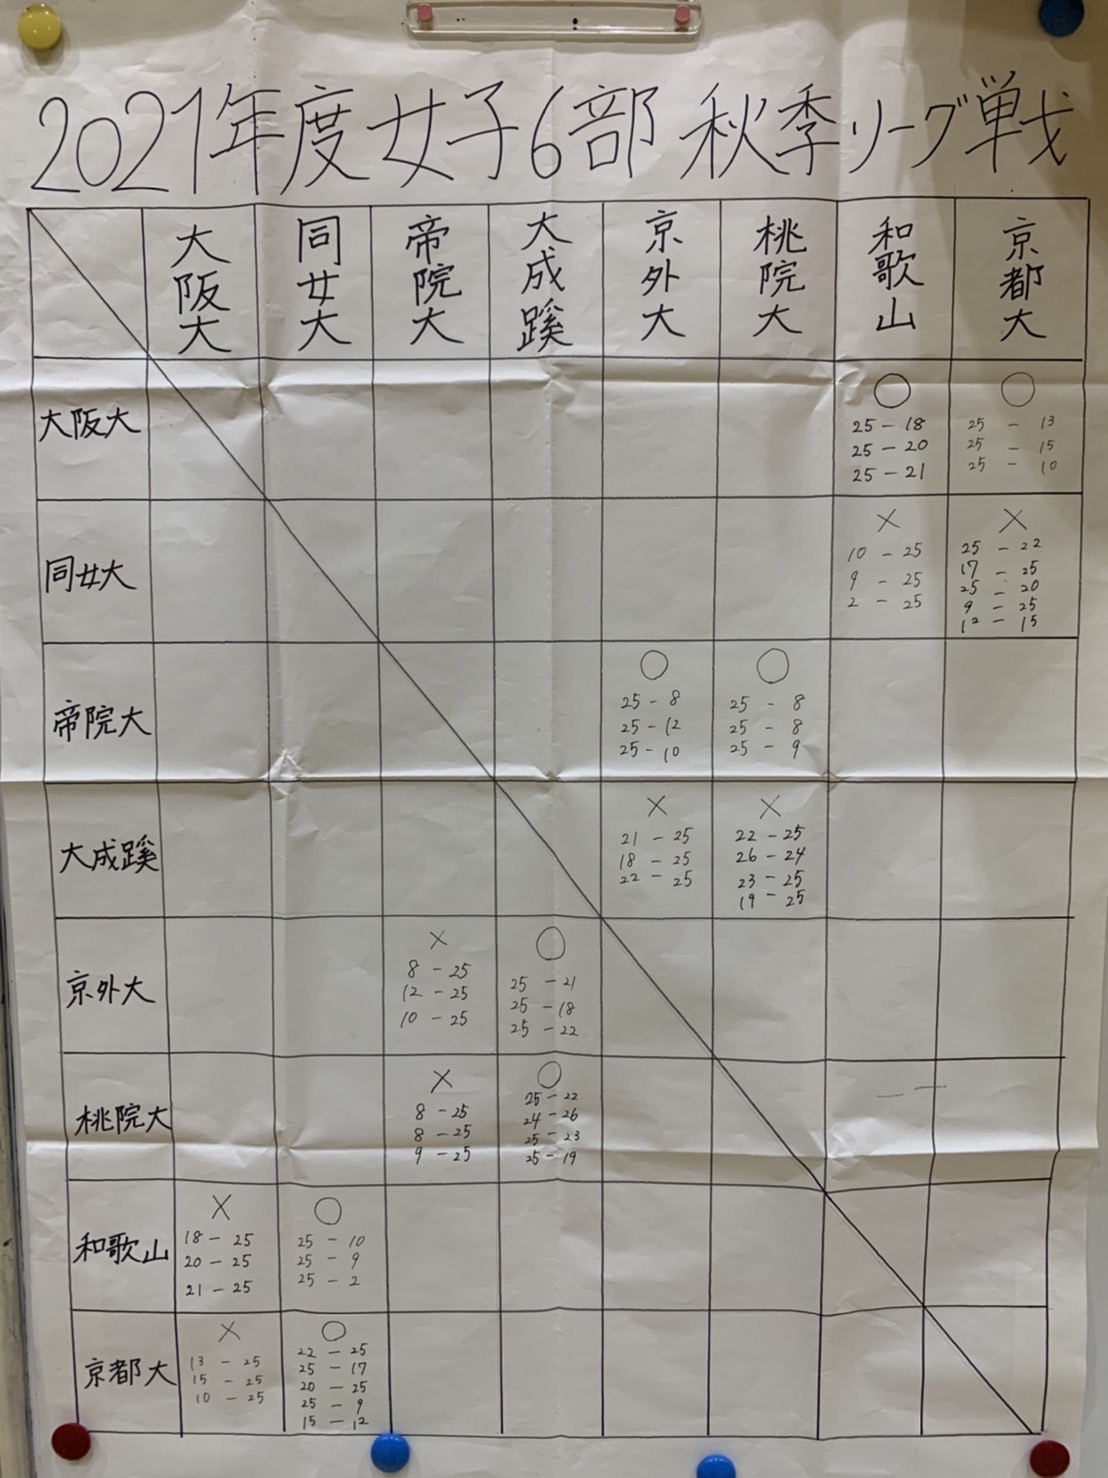 2021年度女子6部 秋季リーグ戦
大阪大 同女大 帝院大 大成蹊 京外大 桃院大 和歌山 京都大
大阪大
○ ○
25-18 25-13
25-20 25-15
25-21 25-10
同女大
× ×
10-25 25-22
9-25 17-25
2-25 25-20
9-25
12-15
帝院大
○ ○
25-8 25-8
25-12 25-8
25-10 25-9
大成蹊
× ×
21-25 22-25
18-25 26-24
22-25 23-25
19-25
京外大
× ○
8-25 25-21
12-25 25-18
10-25 25-22
桃院大
× ○
8-25 25-22
8-25 24-26
9-25 25-23
25-19
和歌山
× ○
18-25 25-10
20-25 25-9
21-25 25-2
京都大
× ○
13-25 22-25
15-25 25-17
10-25 20-25
25-9
15-12